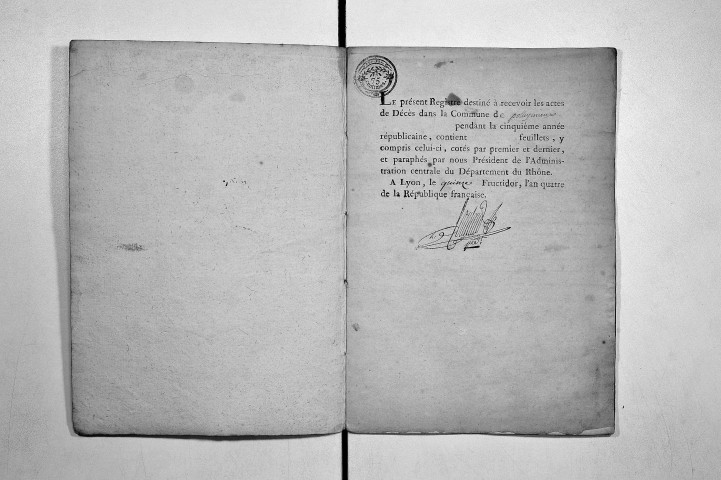 LE présent Registre destiné à recevoir les actes
de Décès dans la Commune de
pendant la cinquième année
républicaine, contient feuillets, y
compris celui-ci, cotés par premier et dernier,
et paraphés par nous Président de l'Adminis-
tration centrale du Département du Rhône.
A Lyon, le quinze Fructidor, l'an quatre
de la République française.